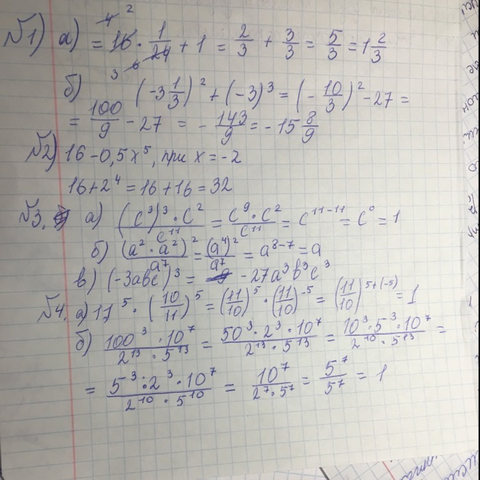 №1) а) = 16 · 1/24 + 1 = 2/3 + 3/3 = 5/3 = 1 2/3
б) (-3 1/3)² + (-3)³ = (- 10/3)² - 27 =
= 100/9 - 27 = - 143/9 = - 15 8/9
№2) 16 - 0,5x⁵, при x = -2
16 + 2⁴ = 16 + 16 = 32
№3. а) (c³)³ · c² / c¹¹ = c⁹ · c² / c¹¹ = c¹¹⁻¹¹ = c⁰ = 1
б) (a² · a²)² / a⁷ = (a⁴)² / a⁷ = a⁸⁻⁷ = a
в) (-3abc)³ = -27a³b³c³
№4. а) 1,1⁵ · (10/11)⁵ = (11/10)⁵ · (11/10)⁻⁵ = (11/10)⁵⁺⁽⁻⁵⁾ = 1
б) 100³ · 10⁷ / 2¹³ · 5¹³ = 50³ · 2³ · 10⁷ / 2¹³ · 5¹³ = 10³ · 5³ · 10⁷ / 2¹⁰ · 5¹³ =
= 5³ · 2³ · 10⁷ / 2¹⁰ · 5¹⁰ = 10⁷ / 2⁷ · 5⁷ = 5⁷ / 5⁷ = 1